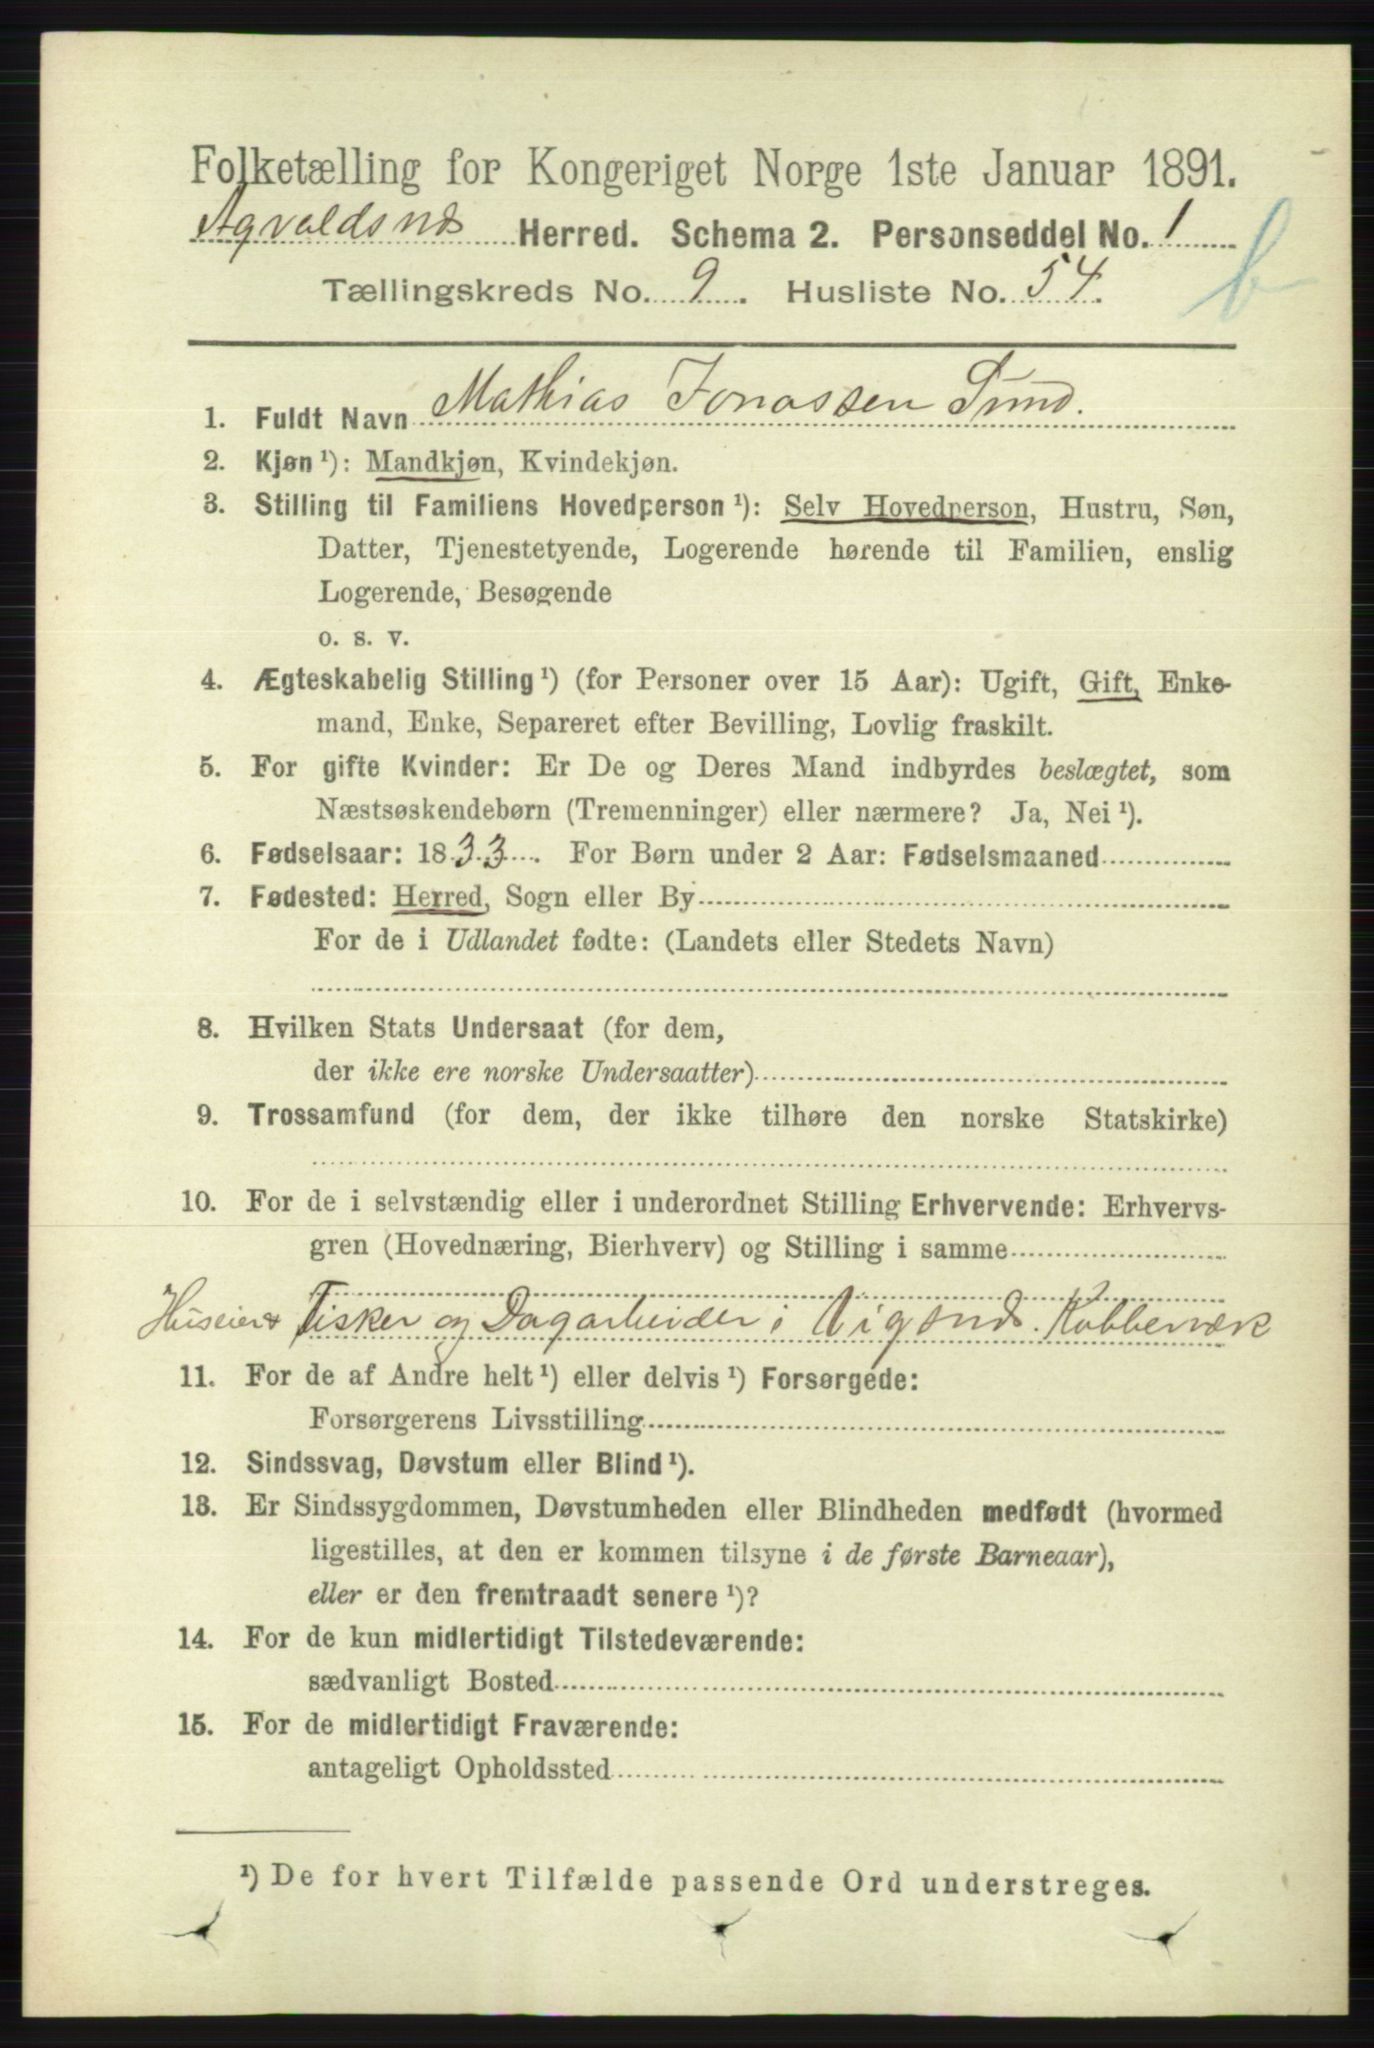 Folketælling for Kongeriget Norge 1ste Januar 1891.
Agvaldsnæs Herred. Schema 2. Personseddel No. 1
Tællingskreds No. 9. Husliste No. 54.
b
1. Fuldt Navn Mathias Jonassen Sund.
2. Kjøn ¹): Mandkjøn, Kvindekjøn.
3. Stilling til Familiens Hovedperson ¹): Selv Hovedperson, Hustru, Søn,
Datter, Tjenestetyende, Logerende hørende til Familien, enslig
Logerende, Besøgende
o. s. v.
4. Ægteskabelig Stilling ¹) (for Personer over 15 Aar): Ugift, Gift, Enke-
mand, Enke, Separeret efter Bevilling, Lovlig fraskilt.
5. For gifte Kvinder: Er De og Deres Mand indbyrdes beslægtet, som
Næstsøskendebørn (Tremenninger) eller nærmere? Ja, Nei ¹).
6. Fødselsaar: 1833. For Børn under 2 Aar: Fødselsmaaned
7. Fødested: Herred, Sogn eller By
For de i Udlandet fødte: (Landets eller Stedets Navn)
8. Hvilken Stats Undersaat (for dem,
der ikke ere norske Undersaatter)
9. Trossamfund (for dem, der ikke tilhøre den norske Statskirke)
10. For de i selvstændig eller i underordnet Stilling Erhvervende: Erhvervs-
gren (Hovednæring, Bierhverv) og Stilling i samme
Huseier Fisker og Dagarbeider i Vigsnæs Kobberværk
11. For de af Andre helt ¹) eller delvis ¹) Forsørgede:
Forsørgerens Livsstilling
12. Sindssvag, Døvstum eller Blind ¹).
13. Er Sindssygdommen, Døvstumheden eller Blindheden medfødt (hvormed
ligestilles, at den er kommen tilsyne i de første Barneaar),
eller er den fremtraadt senere ¹)?
14. For de kun midlertidigt Tilstedeværende:
sædvanligt Bosted
15. For de midlertidigt Fraværende:
antageligt Opholdssted
¹) De for hvert Tilfælde passende Ord understreges.